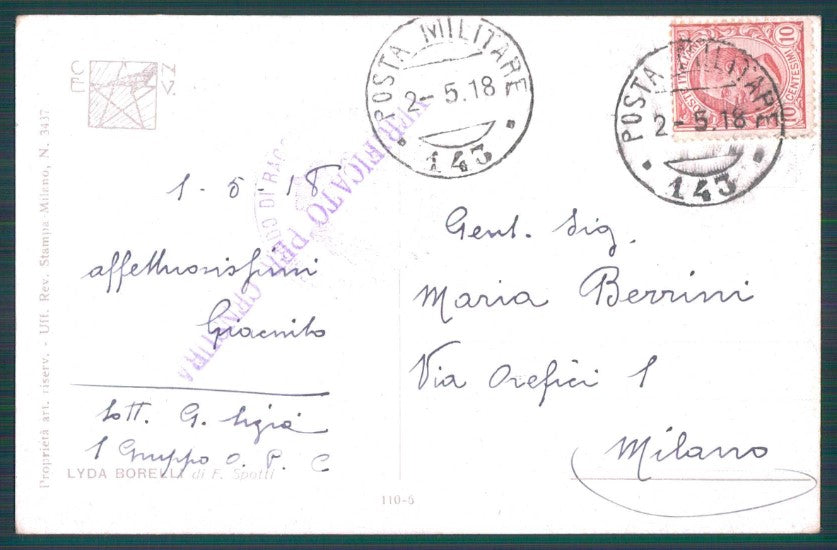 POSTA MILITARE
2-5.18
143
POSTA MILITARE
2-5.18
143
10
CENTESIMI
10
C N
E V.
VERIFICATO PER CENSURA
Proprietà art. riserv. - Uff. Rev. Stampa Milano, N. 3437
1-5-18
affettuosissimi
Giacinto
Sott. G.
1 Gruppo O. P. C
LYDA BORELLI di F. Spotti
110-6
Gent. Sig.
Maria Berrini
Via Orefici 1
Milano